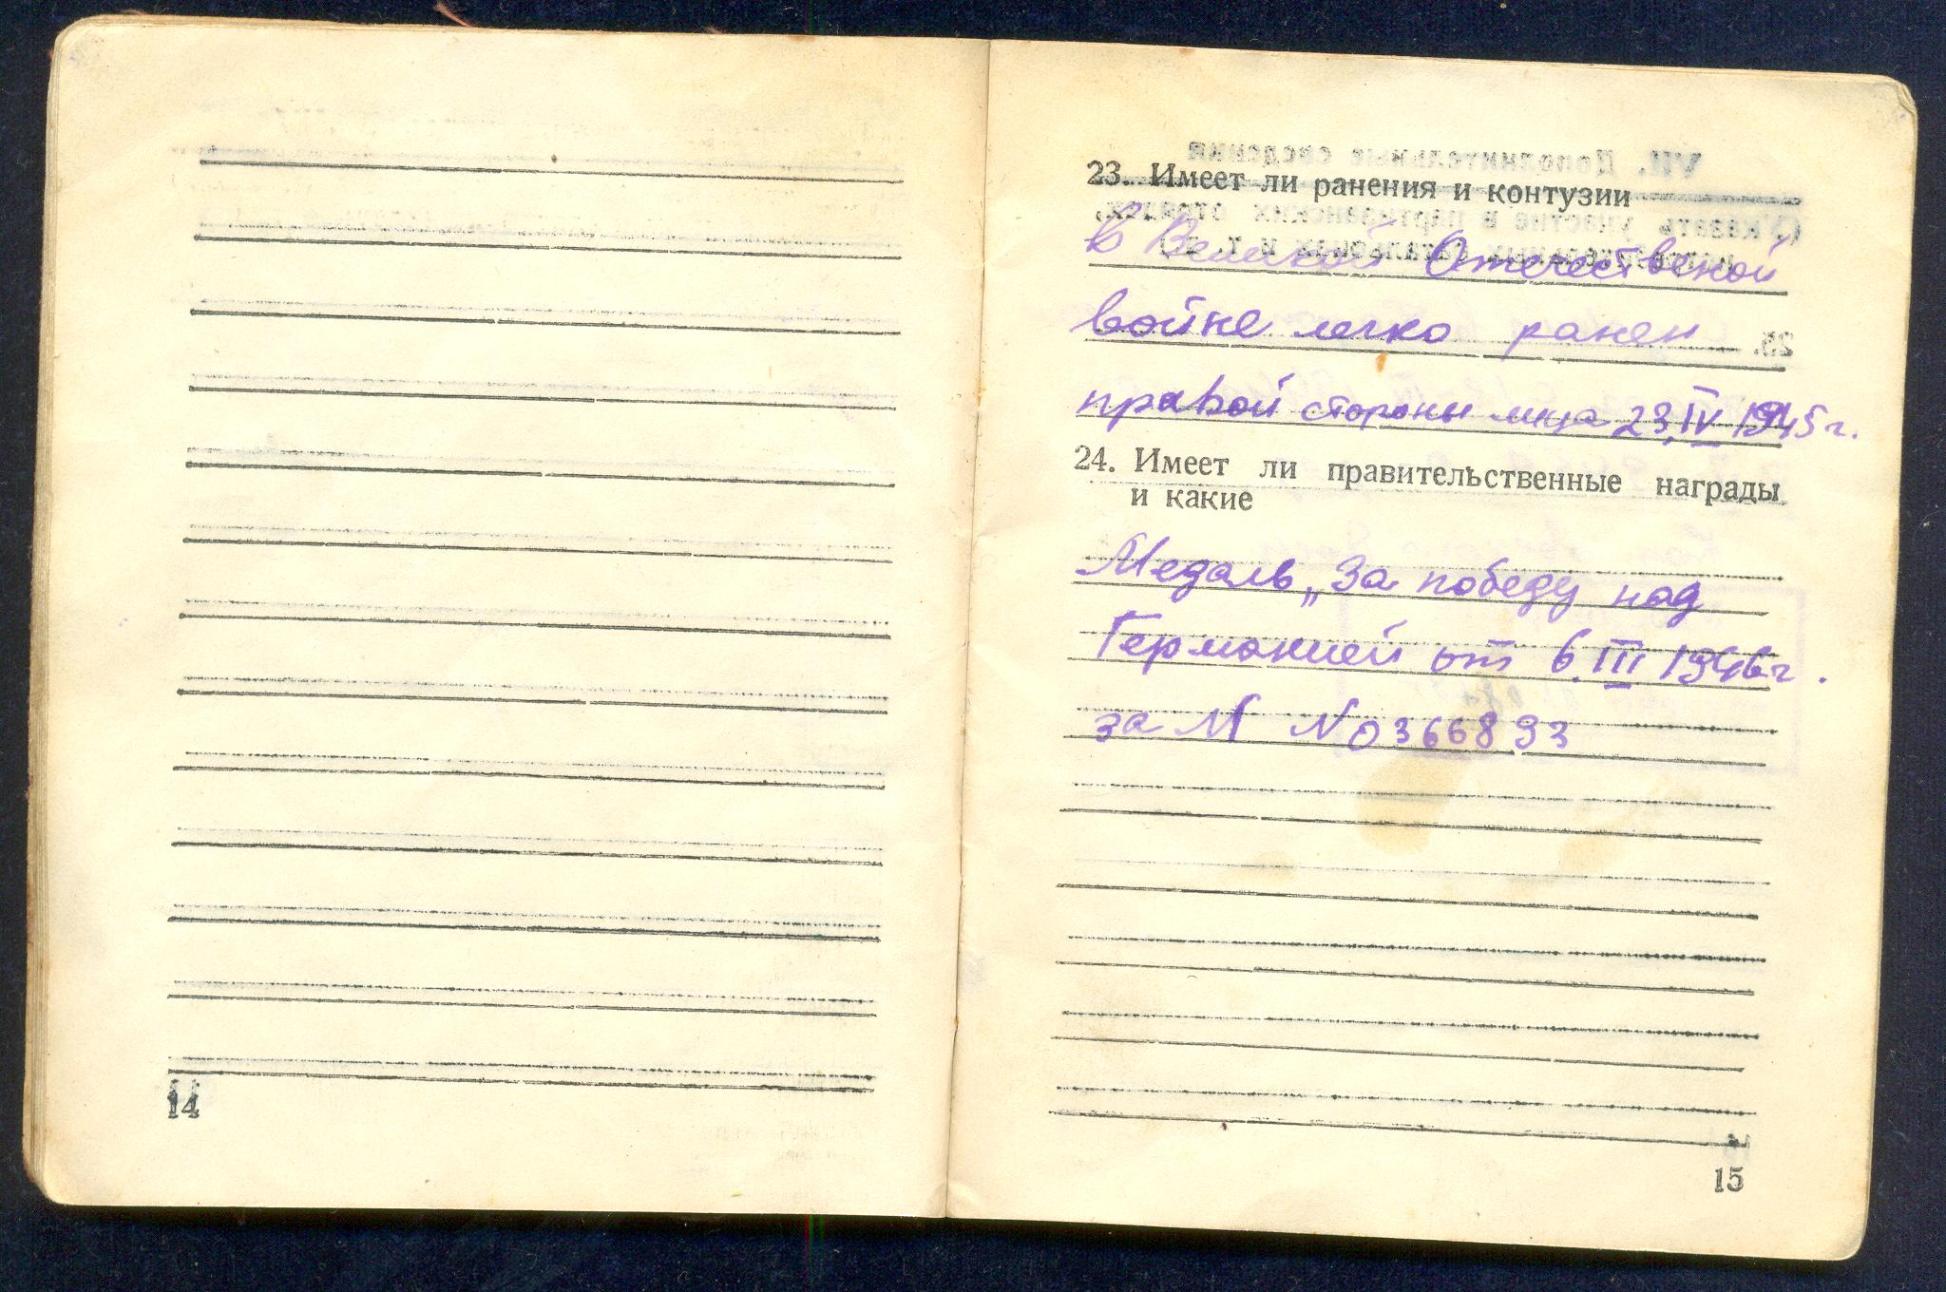 14
23. Имеет ли ранения и контузии
в Великой Отечественой
войне легко ранен
правой стороны лица 23.IV 1945г.
24. Имеет ли правительственные награды
и какие
Медаль „За победу над
Германией от 6.III 1946г.
за М N 0366893
15